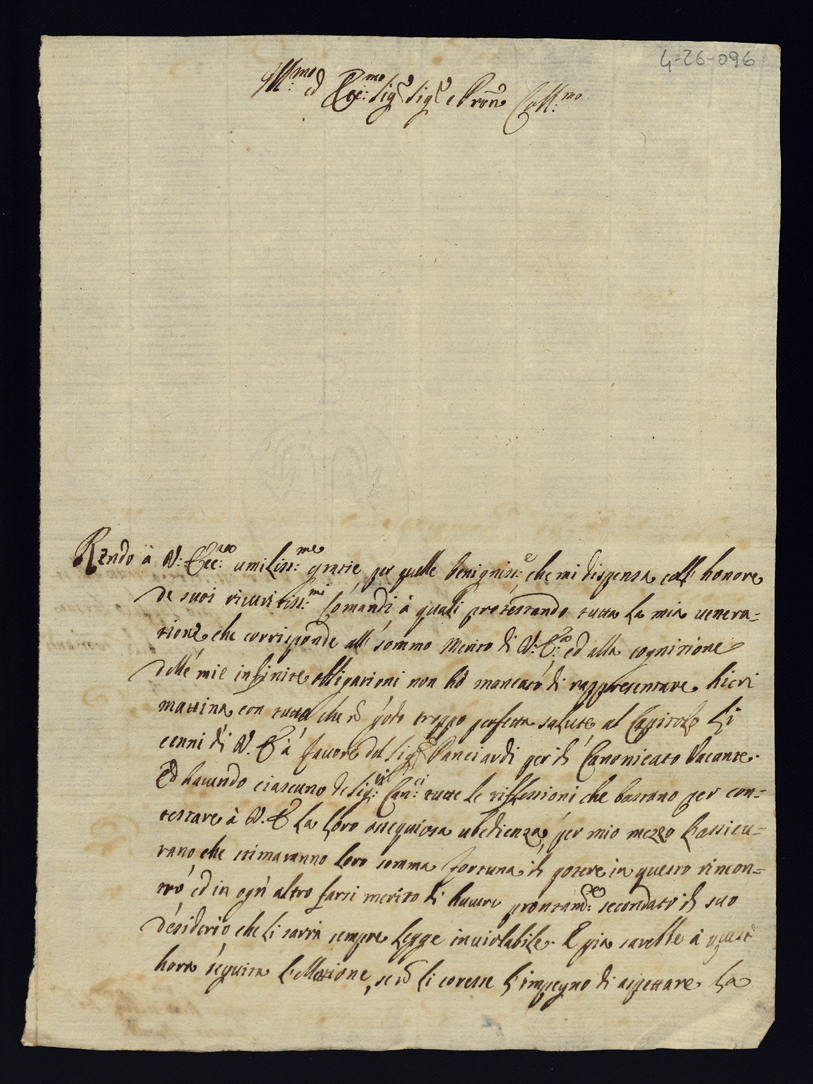 4-26-096
Ill:mo ed Ecc:mo Sigr Sigr e Pron Coll:mo
Rendo à V: Ecc:za umiliss:me grazie per quelle benigniss:e che mi dispensa coll honore
de suoi riveritiss:mi Comandi à quali protestando tutta la mia venera=
tione che corrisponde all sommo Merito di V: E:za ed alla cognizione
delle mie infinite obligazioni non hò mancato di rappresentare hieri
mattina con tutto che nõ godo troppo perfetta salute al Capitolo li
cenni di V. E a favore del Sigr Panciardi per il Canonicato Vacante.
Ed havendo ciascuno de Sig:ri Can:ci tutte le riflessioni che bastano per con=
testare à V. E la loro ossequiosa ubedienza, per mio mezzo l'assicu=
rano che stimaranno loro somma fortuna il potere in questo rincon=
tro ed in ogn altro farsi merito di havere prontam:te secondato il suo
desiderio che li sarà sempre legge inviolabile. E già sarebbe à quest
hora seguita l'ellezione, se nõ li coresse l'impegno di aspettare la